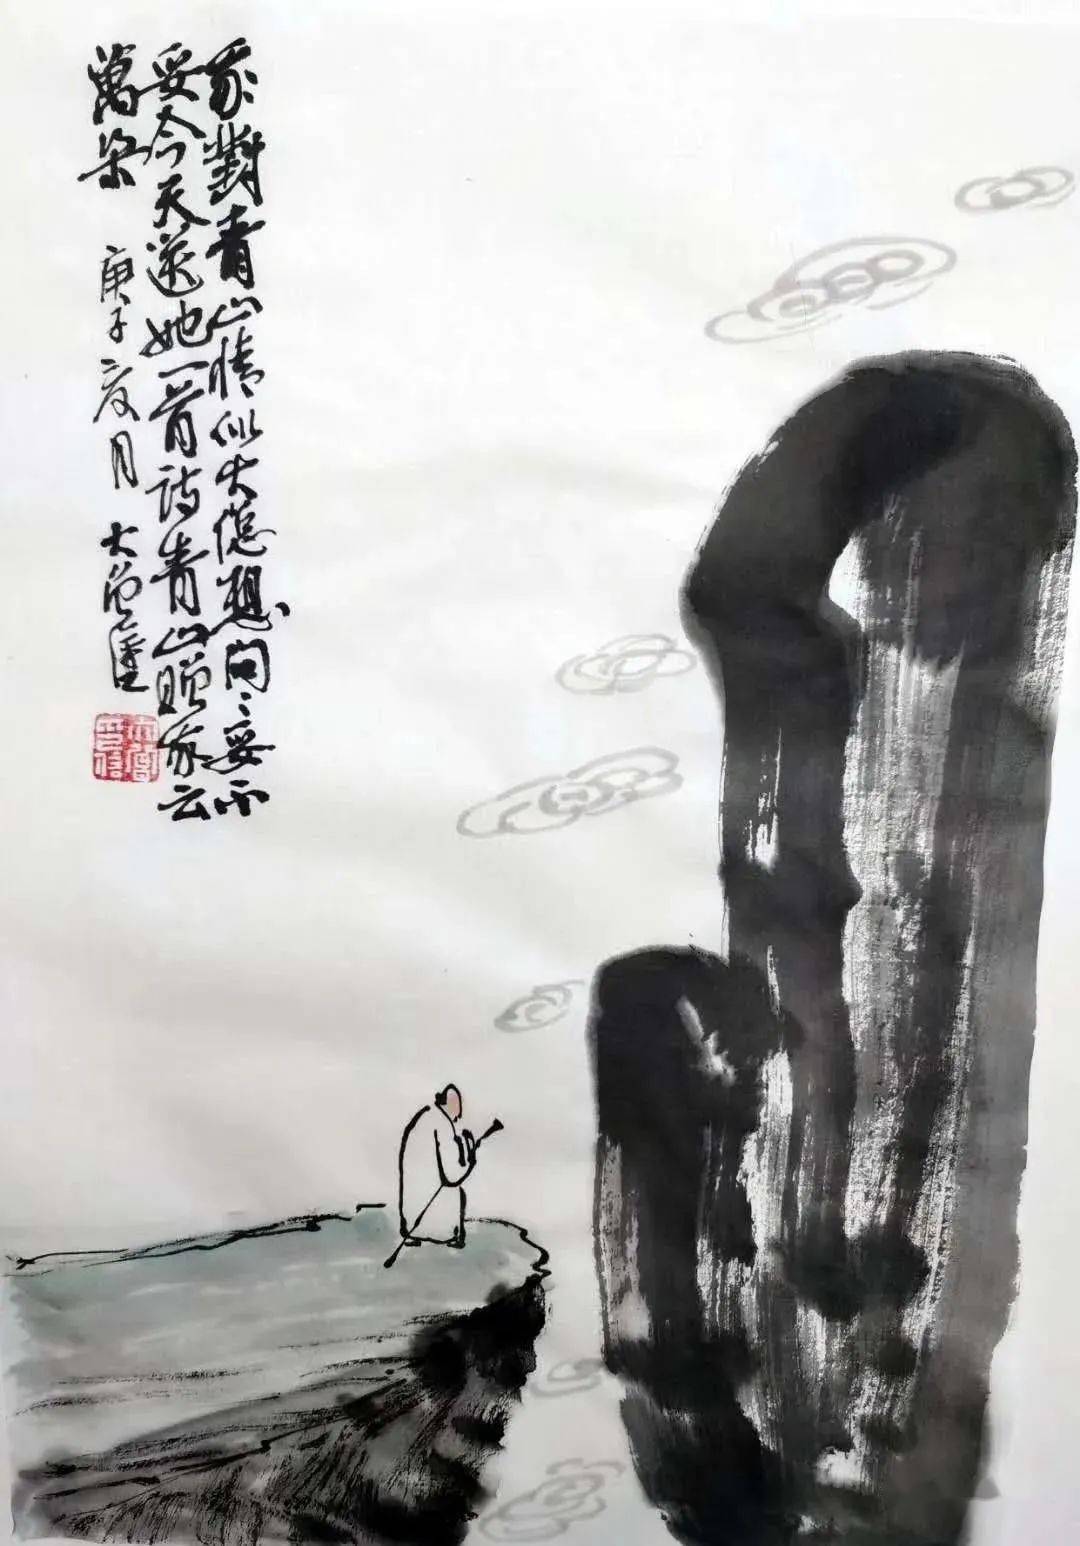 我對青山情似火總想問問妥不
妥今天送她一首詩青山贈我云
萬朵
庚子夏月 大